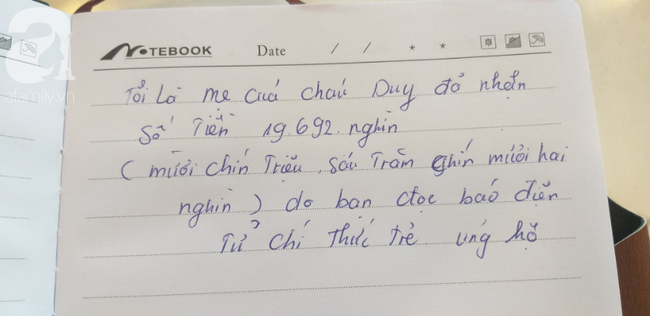 NOTEBOOK Date / / * *
afamily.vn
Tôi là mẹ cuả chaú Duy đã nhận
Số Tiền 19.692.nghìn
( mười chín Triệu, sáu Trăm chín mươi hai
nghìn ) do bạn đọc baó điện
Tử chí thức trẻ ủng hộ